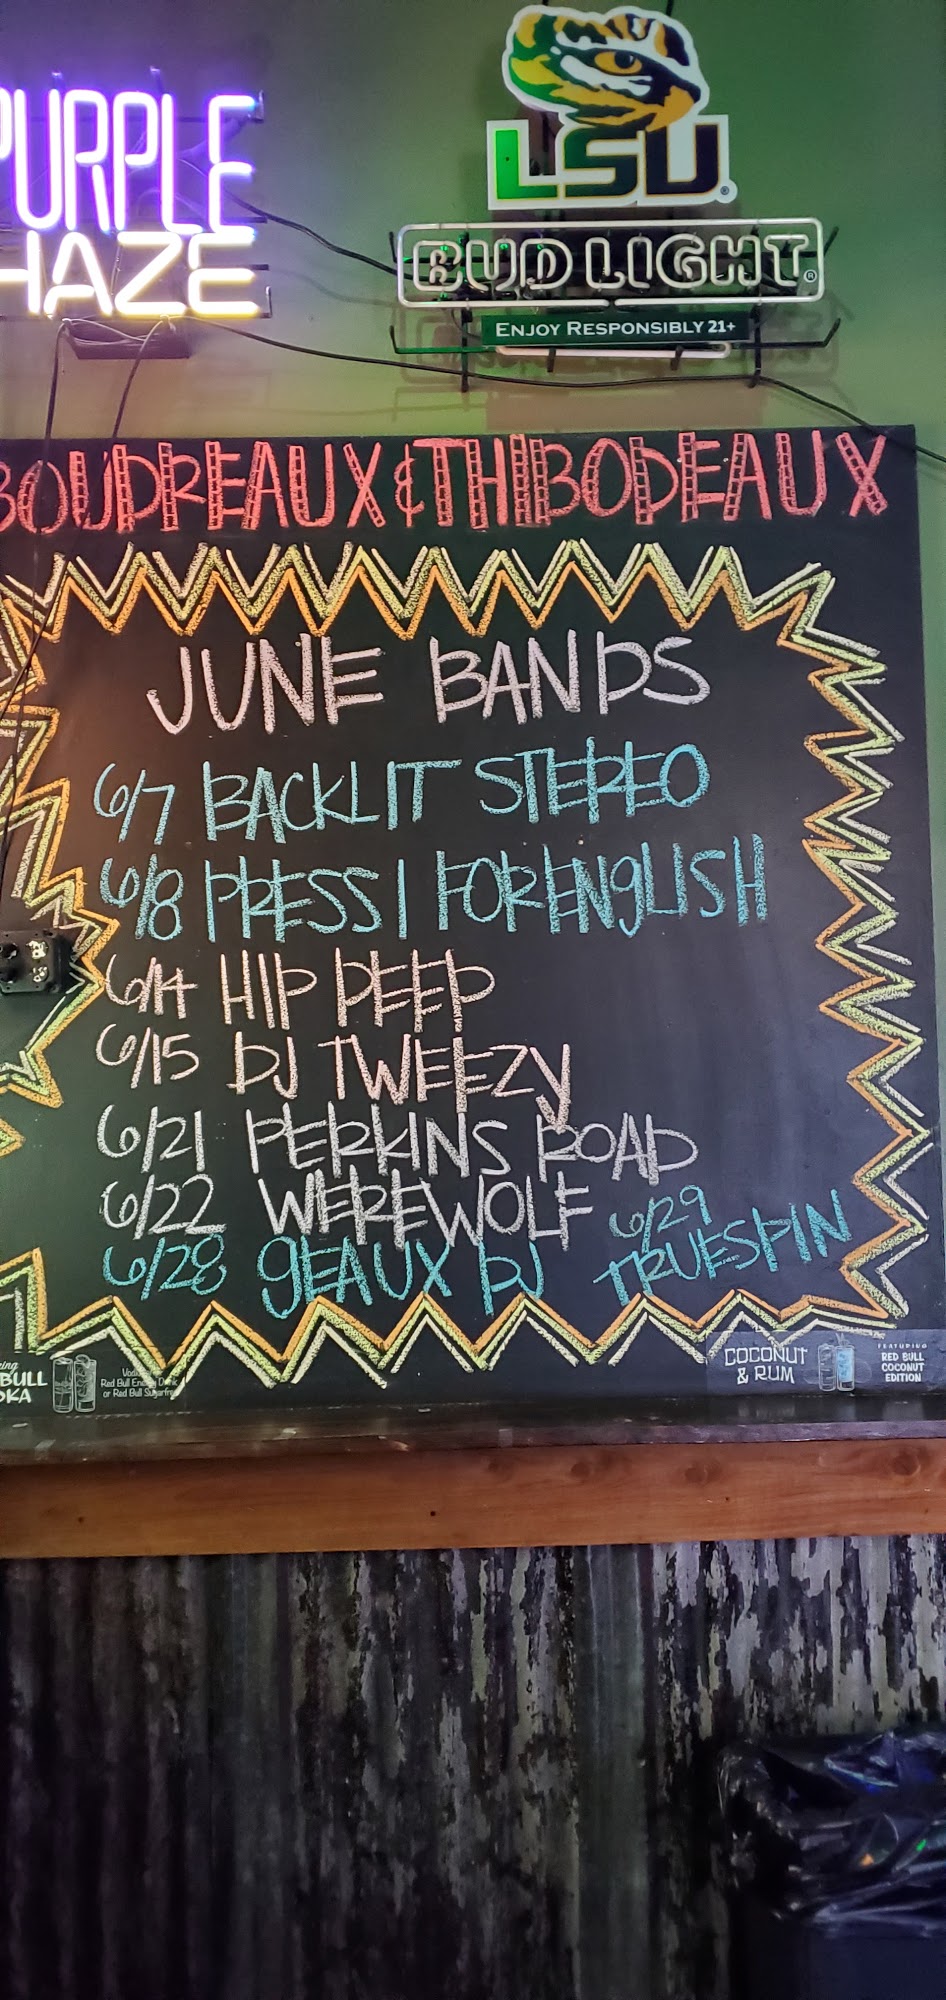 PURPLE
HAZE
LSU
BUD LIGHT
ENJOY RESPONSIBLY 21+
BOUDREAUX & THIBODEAUX
JUNE BANDS
6/7 BACKLIT STEREO
6/8 PRESS 1 FOR ENGLISH
6/14 HIP DEEP
6/15 DJ TWEEZY
6/21 PERKINS ROAD
6/22 WEREWOLF
6/28 GEAUX DJ
6/29
TRUESPIN
BULL
Red Bull Energy Drink
or Red Bull Sugarfree
COCONUT
& RUM
FEATURING
RED BULL
COCONUT
EDITION